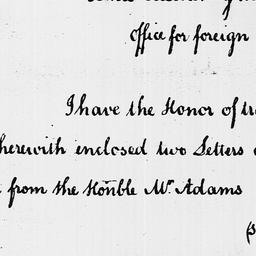 Office for foreign
I have the Honor of
herewith enclosed two Letters
from the Honble Mr. Adams